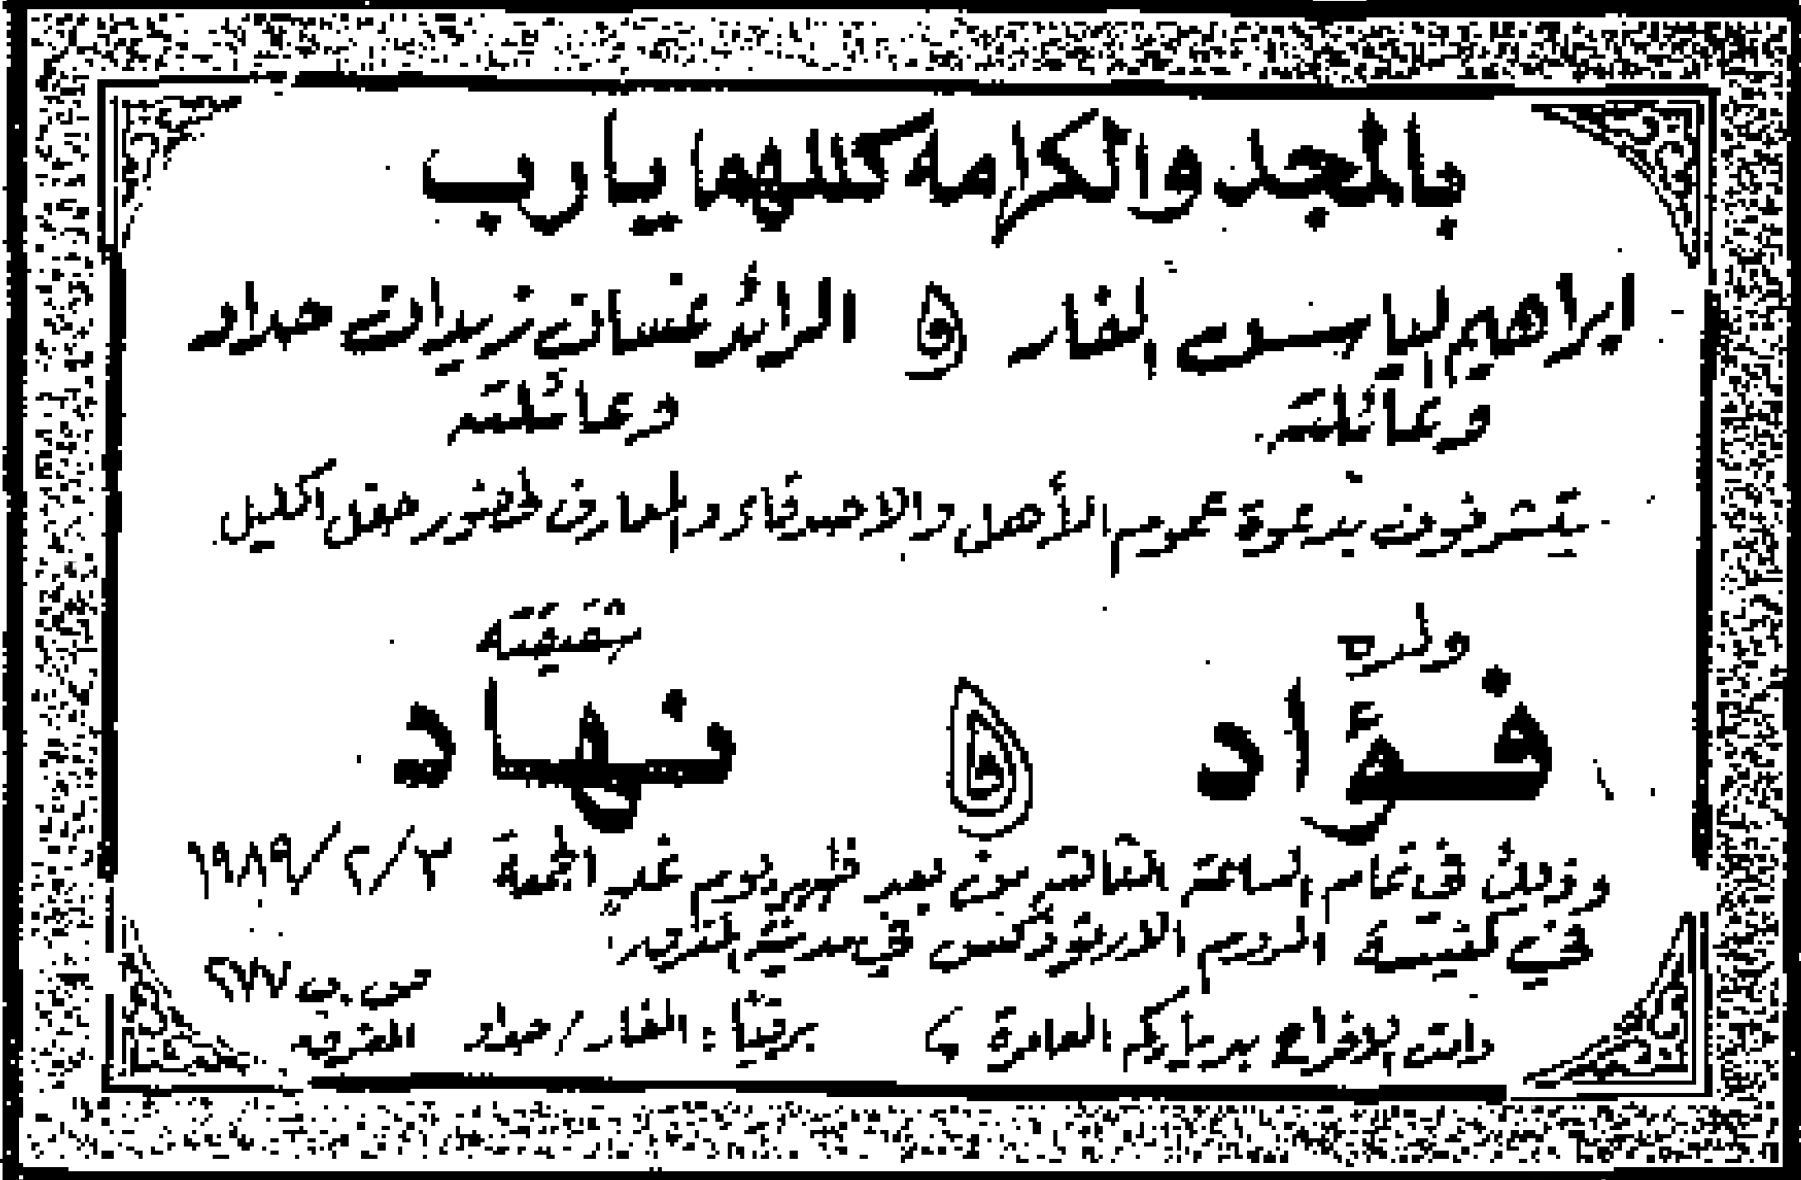 بالمجد والكرامه كللهما يا رب
ابراهيم الياس الفار و الرائد غسان زيدان حداد
وعائلته وعائلته
يتشرفون بدعوة عموم الأهل والاصدقاء والمعارف لحضور حفل اكليل
ولده شقيقته
فؤاد و نهاد
وذلك في تمام الساعة الثالثة من بعد ظهر يوم غدٍ الجمعة ٣/٢/١٩٨٩
في كنيسة الروم الارثوذكس في مدينة المفرق
دامت الافراح بدياركم العامرة برقياً: الفار/حداد المفرق ص.ب ٦٧٧